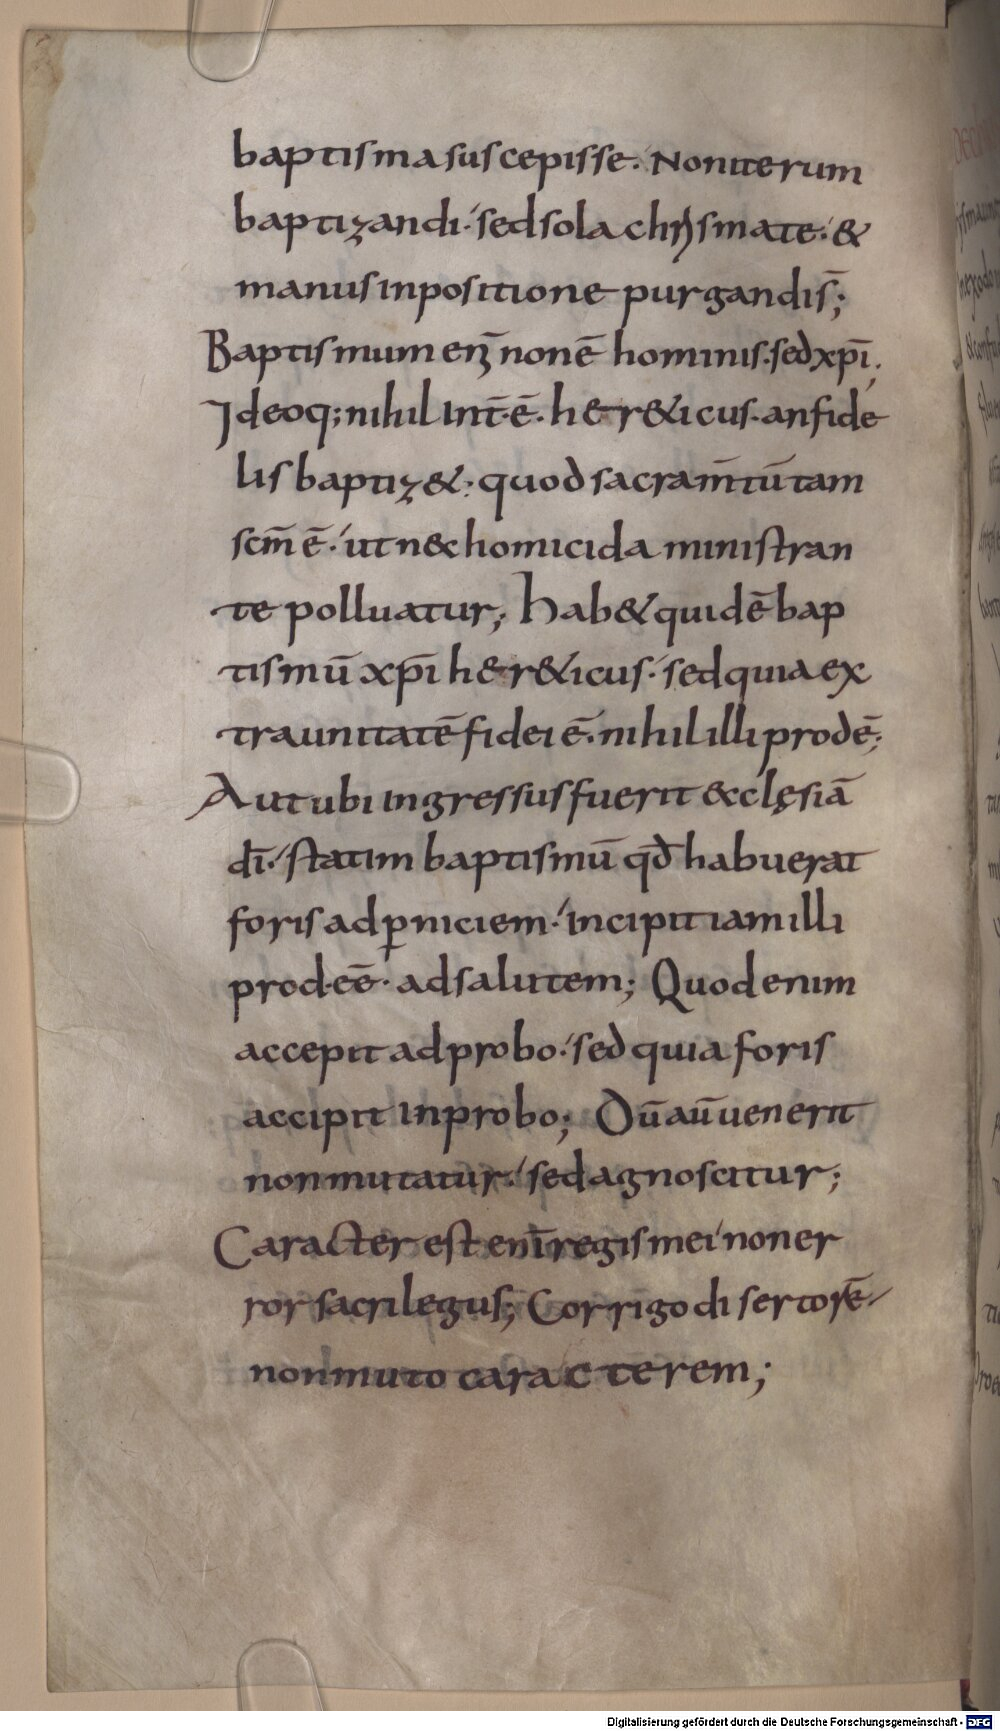 baptisma suscepisse. Non iterum
baptizandi. sed sola chrismate. &
manus inpositione purgandis̄;
Baptismum eni̅ non ē hominis. sed xp̄i.
Ideoq; nihil int̄ ē. her&icus. an fide
lis baptiz&. quod sacram̄tū tam
scm̄ ē. ut nec homicida ministran
te polluatur; Hab& quidē bap
tismū xp̄i her&icus. sed quia ex
tra unitatē fidei ē. nihil illi prodē;
Aut ubi ingressus fuerit &clęsiā
dī. statim baptismū qd̄ habuerat
foris ad ꝑniciem. incipit iam illi
prod.eē. ad salutem; Quod enim
accepit adprobo. sed quia foris
accipit inprobo; Dū aū uenerit
non mutatur. sed agnoscitur;
Caracter est eni̅ regis mei non er
ror sacrilegus; Corrigo disertorē
non muto caracterem;
Digitalisierung gefördert durch die Deutsche Forschungsgemeinschaft - DFG